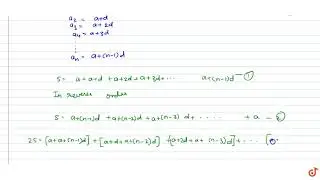 a₂ = a+d
a₃ = a+2d
a₄ = a+3d
aₙ = a+(n-1)d
S = a+a+d + a+2d+a+3d+ ··· a+(n-1)d —①
In reverse order
S = a+(n-1)d + a+(n-2)d + a+(n-3)d + d+ ······ + a —②
2S = [a+a+(n-1)d] + [a+d+a+(n-2)d] + [a+2d+a+(n-3)d]+ ····